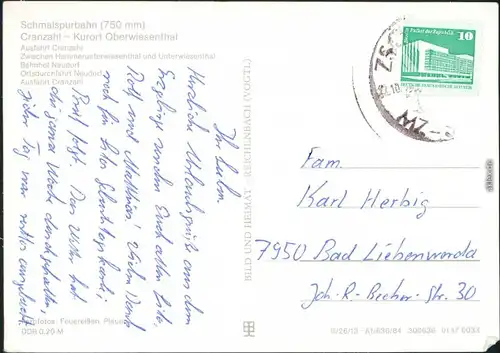 Schmalspurbahn (750 mm)
Cranzahl – Kurort Oberwiesenthal
Ausfahrt Cranzahl
Zwischen Hammerunterwiesenthal und Unterwiesenthal
Bahnhof Neudorf
Ortsdurchfahrt Neudorf
Ausfahrt Cranzahl
Ihr Lieben
Herzliche Urlaubsgrüße aus dem
Erzgebirge senden Euch allen Eite,
Rolf und Matthias! Vielen Dank
noch für Eure Glückwunschkarte!
Brief folgt. Das Wetter hat
die ganze Woche durchgehalten,
jeder Tag war
BILD UND HEIMAT REICHENBACH (VOGTL)
Palast der Republik
10
DEUTSCHE DEMOKRATISCHE REPUBLIK
ZW
Fam.
Karl Herbig
7950 Bad Liebenwerda
Joh.-R.-Becher-Str. 30
Fotos: Feuereißen, Plauen
DDR 0,20 M